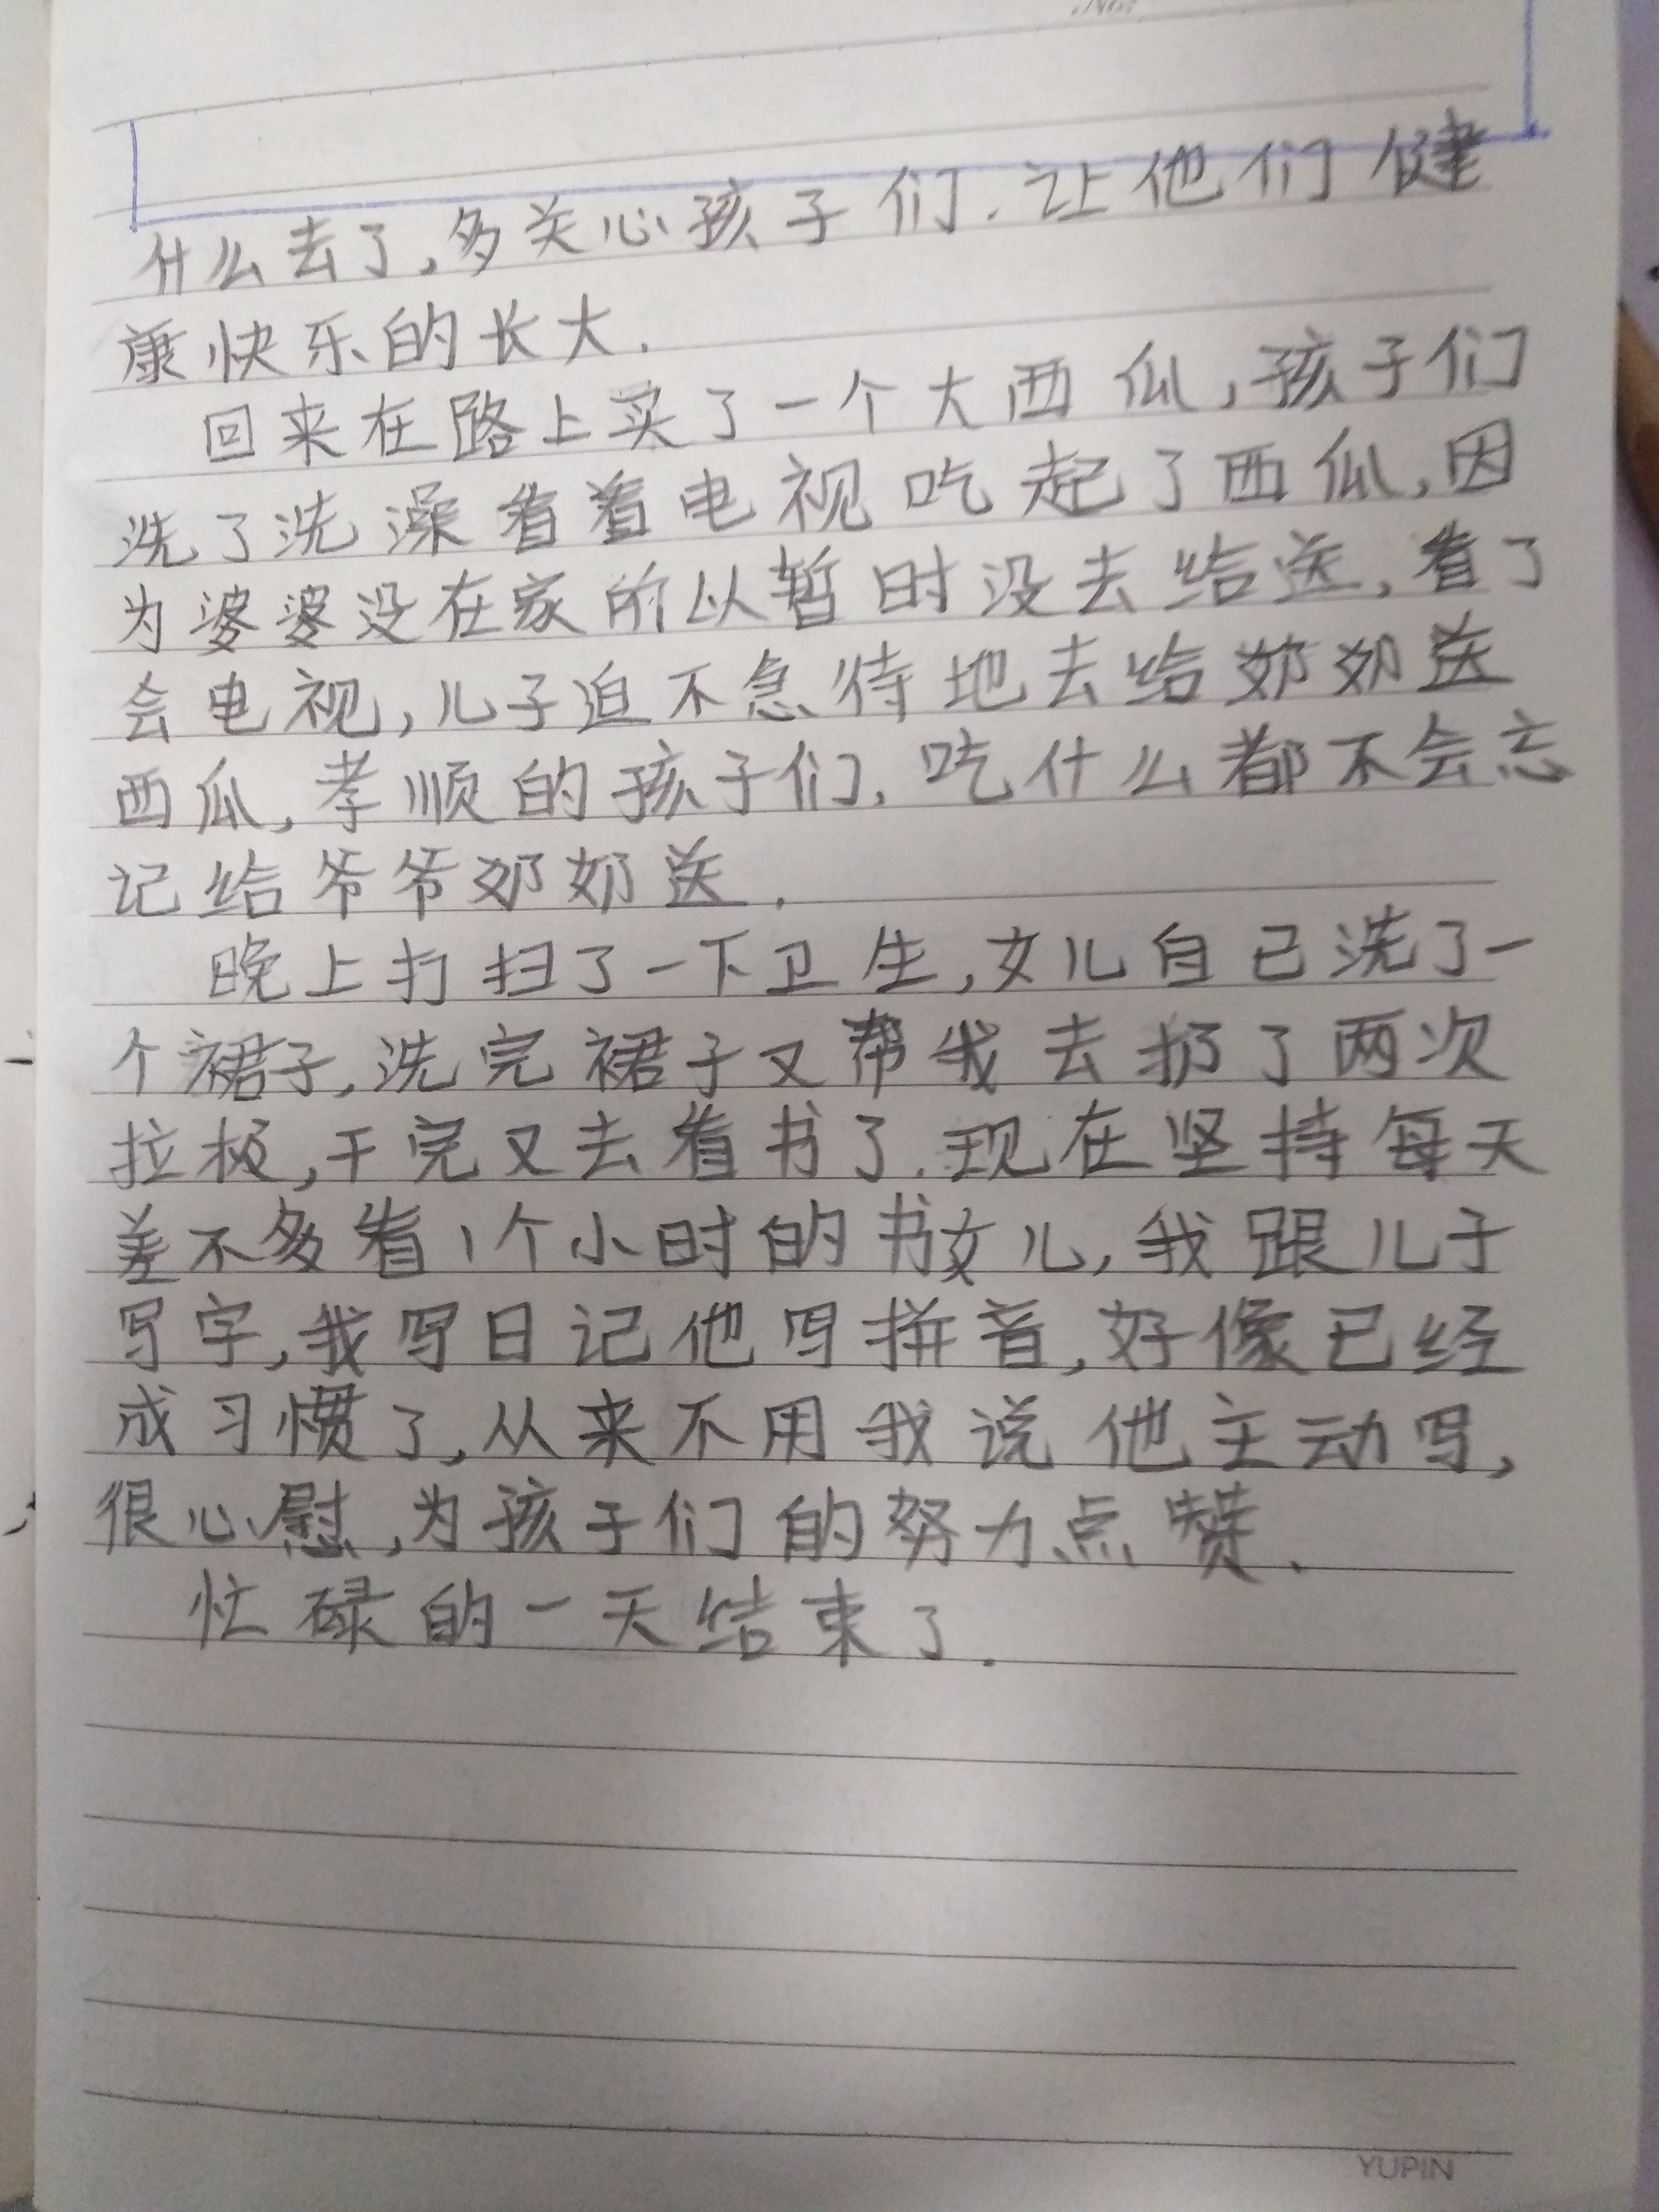 No:
什么去了,多关心孩子们.让他们健
康快乐的长大.
回来在路上买了一个大西瓜,孩子们
洗了洗澡看着电视吃起了西瓜,因
为婆婆没在家所以暂时没去给送,看了
会电视,儿子迫不急待地去给奶奶送
西瓜,孝顺的孩子们,吃什么都不会忘
记给爷爷奶奶送.
晚上打扫了一下卫生,女儿自己洗了一
个裙子,洗完裙子又帮我去扔了两次
拉极,干完又去看书了.现在坚持每天
差不多看1个小时的书女儿,我跟儿子
写字,我写日记他写拼音,好像已经
成习惯了,从来不用我说他主动写,
很心慰,为孩子们的努力点赞.
忙碌的一天结束了.
YUPIN